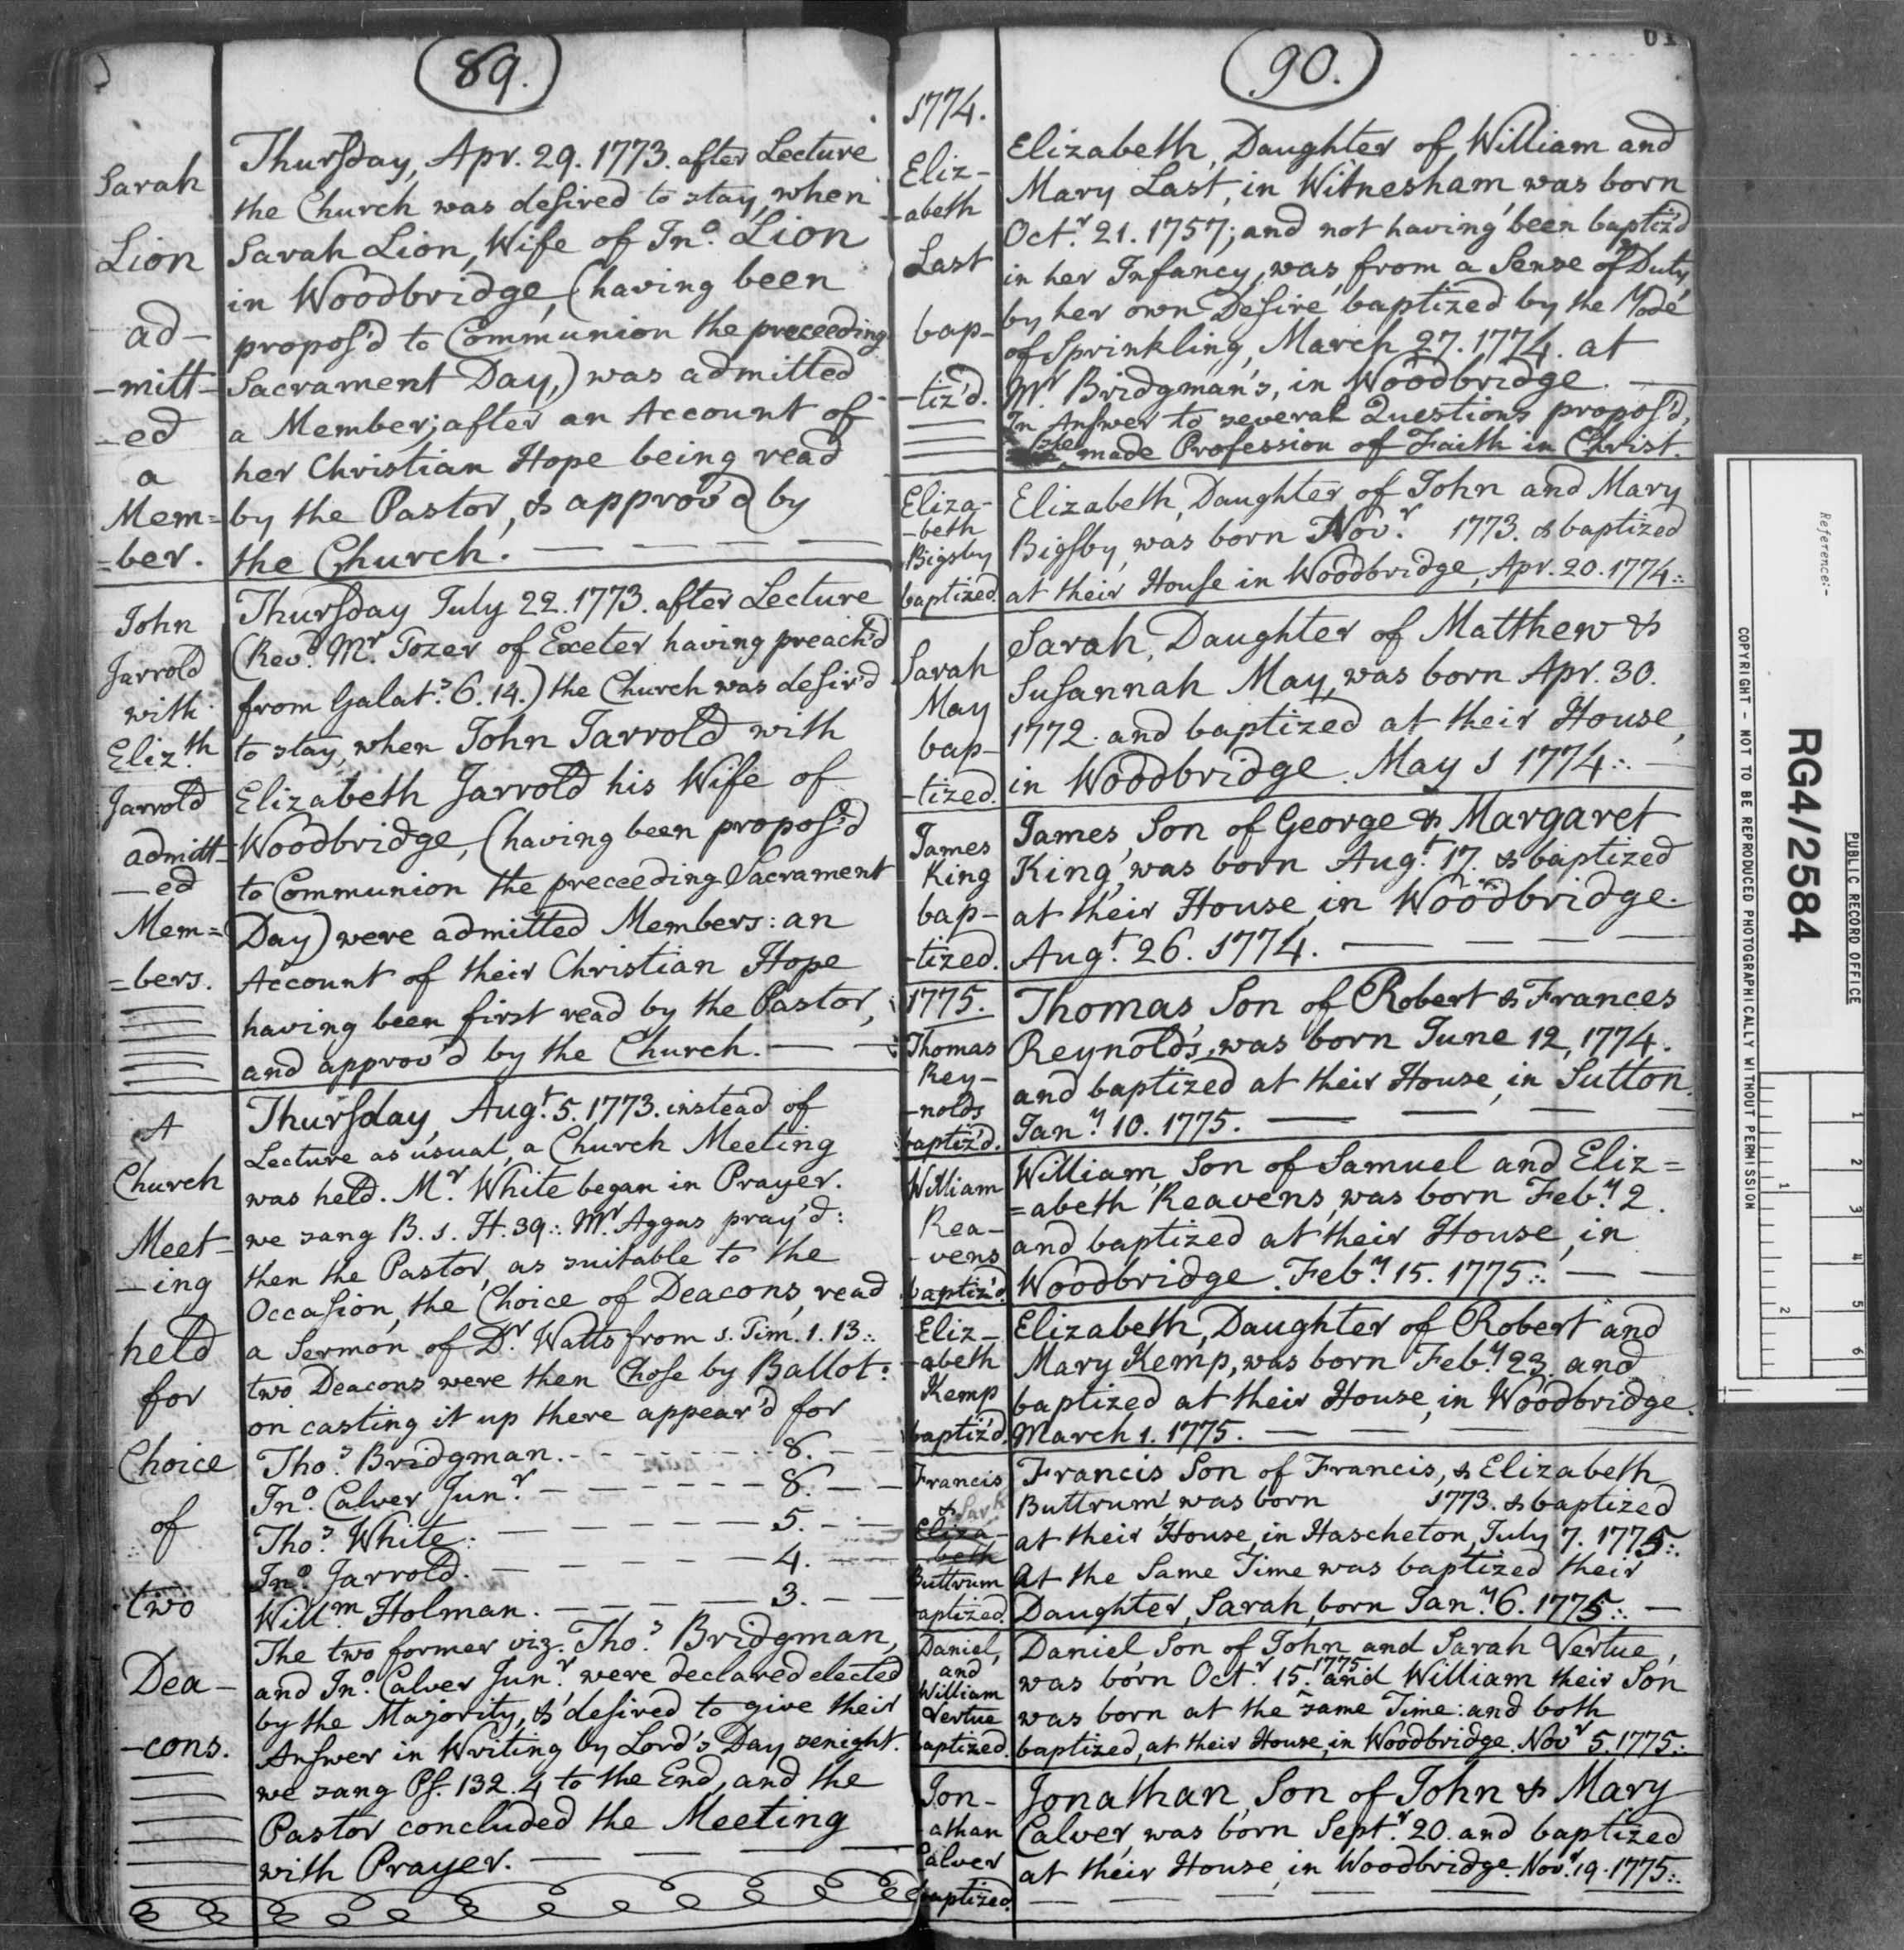 89.
Sarah
Lion
ad-
-mitt-
-ed
a
Mem=
=ber.
Thursday, Apr. 29. 1773. after Lecture
the Church was desired to stay, when
Sarah Lion, Wife of Jno. Lion
in Woodbridge, (having been
propos'd to Communion the preceeding
Sacrament Day,) was admitted
a Member; after an Account of
her Christian Hope being read
by the Pastor, & approv'd by
the Church.
John
Jarrold
with
Eliz.th
Jarrold
admitt-
-ed
Mem=
=bers.
Thursday July 22. 1773. after Lecture
(Revd. Mr. Tozer of Exeter having preach'd
from Galats. 6. 14.) the Church was desir'd
to stay, when John Jarrold with
Elizabeth Jarrold his Wife of
Woodbridge, (having been propos'd
to Communion the preceeding Sacrament
Day) were admitted Members: an
Account of their Christian Hope
having been first read by the Pastor,
and approv'd by the Church.
A
Church
Meet-
-ing
held
for
Choice
of
two
Dea-
-cons.
Thursday, Augt. 5. 1773. instead of
Lecture as usual, a Church Meeting
was held. Mr. White began in Prayer.
we sang B. 1. H. 39.: Mr. Aggus pray'd:
then the Pastor, as suitable to the
Occasion, the Choice of Deacons, read
a Sermon of Dr. Watts from 1. Tim. 1. 13.:
two Deacons were then Chose by Ballot:
on casting it up there appear'd for
Thos. Bridgman. - - - - 8. - -
Jno. Calver Junr. - - - - 8. - -
Thos. White: - - - - 5. - -
Jno. Jarrold. - - - - 4. - -
Willm. Holman. - - - - 3. - -
The two former viz. Thos. Bridgman,
and Jno. Calver Junr. were declared elected
by the Majority, & desired to give their
Answer in Writing by Lord's Day senight.
we sang Ps. 132. 4 to the End, and the
Pastor concluded the Meeting
with Prayer.
90.
1774.
Eliz-
-abeth
Last
bap-
-tiz'd.
Elizabeth, Daughter of William and
Mary Last, in Witnesham, was born
Octr. 21. 1757; and not having been baptiz'd
in her Infancy, was, from a Sense of Duty,
by her own Desire baptized by the Mode
of Sprinkling, March 27. 1774. at
Mr. Bridgman's, in Woodbridge.
In Answer to several Questions propos'd,
she made Profession of Faith in Christ.
Eliza-
-beth
Bigsby
baptized.
Elizabeth, Daughter of John and Mary
Bigsby, was born Novr. 1773. & baptized
at their House in Woodbridge, Apr. 20. 1774.:
Sarah
May
bap-
-tized.
Sarah, Daughter of Matthew &
Susannah May, was born Apr. 30.
1772. and baptized at their House,
in Woodbridge. May 1 1774.:
James
King
bap-
-tized.
James, Son of George & Margaret
King, was born Augt. 17. & baptized
at their House, in Woodbridge.
Augt. 26. 1774.
1775.
Thomas
Rey-
-nolds
baptiz'd.
Thomas, Son of Robert & Frances
Reynolds, was born June 12, 1774.
and baptized at their House, in Sutton.
Jany. 10. 1775.
William
Rea-
-vens
baptiz'd.
William, Son of Samuel and Eliz=
=abeth Reavens, was born Feby. 2.
and baptized at their House, in
Woodbridge. Feby. 15. 1775.:
Eliz-
-abeth
Kemp
baptiz'd.
Elizabeth, Daughter of Robert and
Mary Kemp, was born Feby. 23. and
baptized at their House, in Woodbridge.
March 1. 1775.
Francis
& Sarh
Eliza-
-beth
Buttrum
baptized.
Francis Son of Francis, & Elizabeth
Buttrum, was born 1773. & baptized
at their House, in Hascheton, July 7. 1775.:
At the Same Time was baptized their
Daughter, Sarah, born Jany. 6. 1775.:
Daniel,
and
William
Vertue
baptized.
Daniel, Son of John and Sarah Vertue,
was born Octr. 15. 1775 and William their Son
was born at the same Time: and both
baptized, at their House, in Woodbridge. Novr. 5. 1775.:
Jon-
-athan
Calver
baptized.
Jonathan, Son of John & Mary
Calver, was born Septr. 20. and baptized
at their House, in Woodbridge. Novr. 19. 1775.:
Reference:-
PUBLIC RECORD OFFICE
RG4/2584
COPYRIGHT - NOT TO BE REPRODUCED PHOTOGRAPHICALLY WITHOUT PERMISSION
1 2 3 4 5 6
1 2